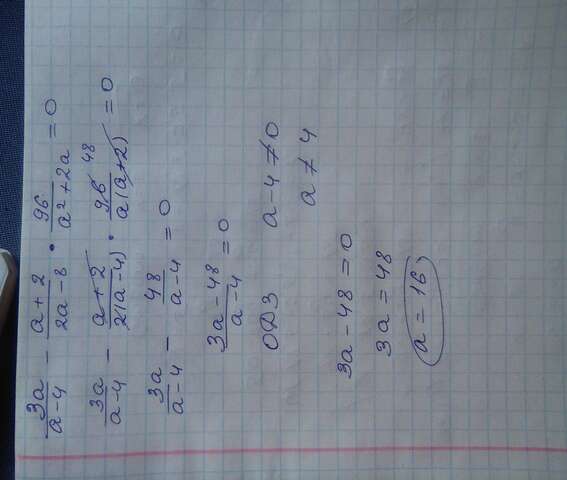 3a/(a-4) - (a+2)/(2a-8) · 96/(a²+2a) = 0
3a/(a-4) - (a+2)/(2(a-4)) · 96 48/(a(a+2)) = 0
3a/(a-4) - 48/(a-4) = 0
(3a-48)/(a-4) = 0
ОДЗ a-4≠0
a≠4
3a-48=0
3a=48
a=16